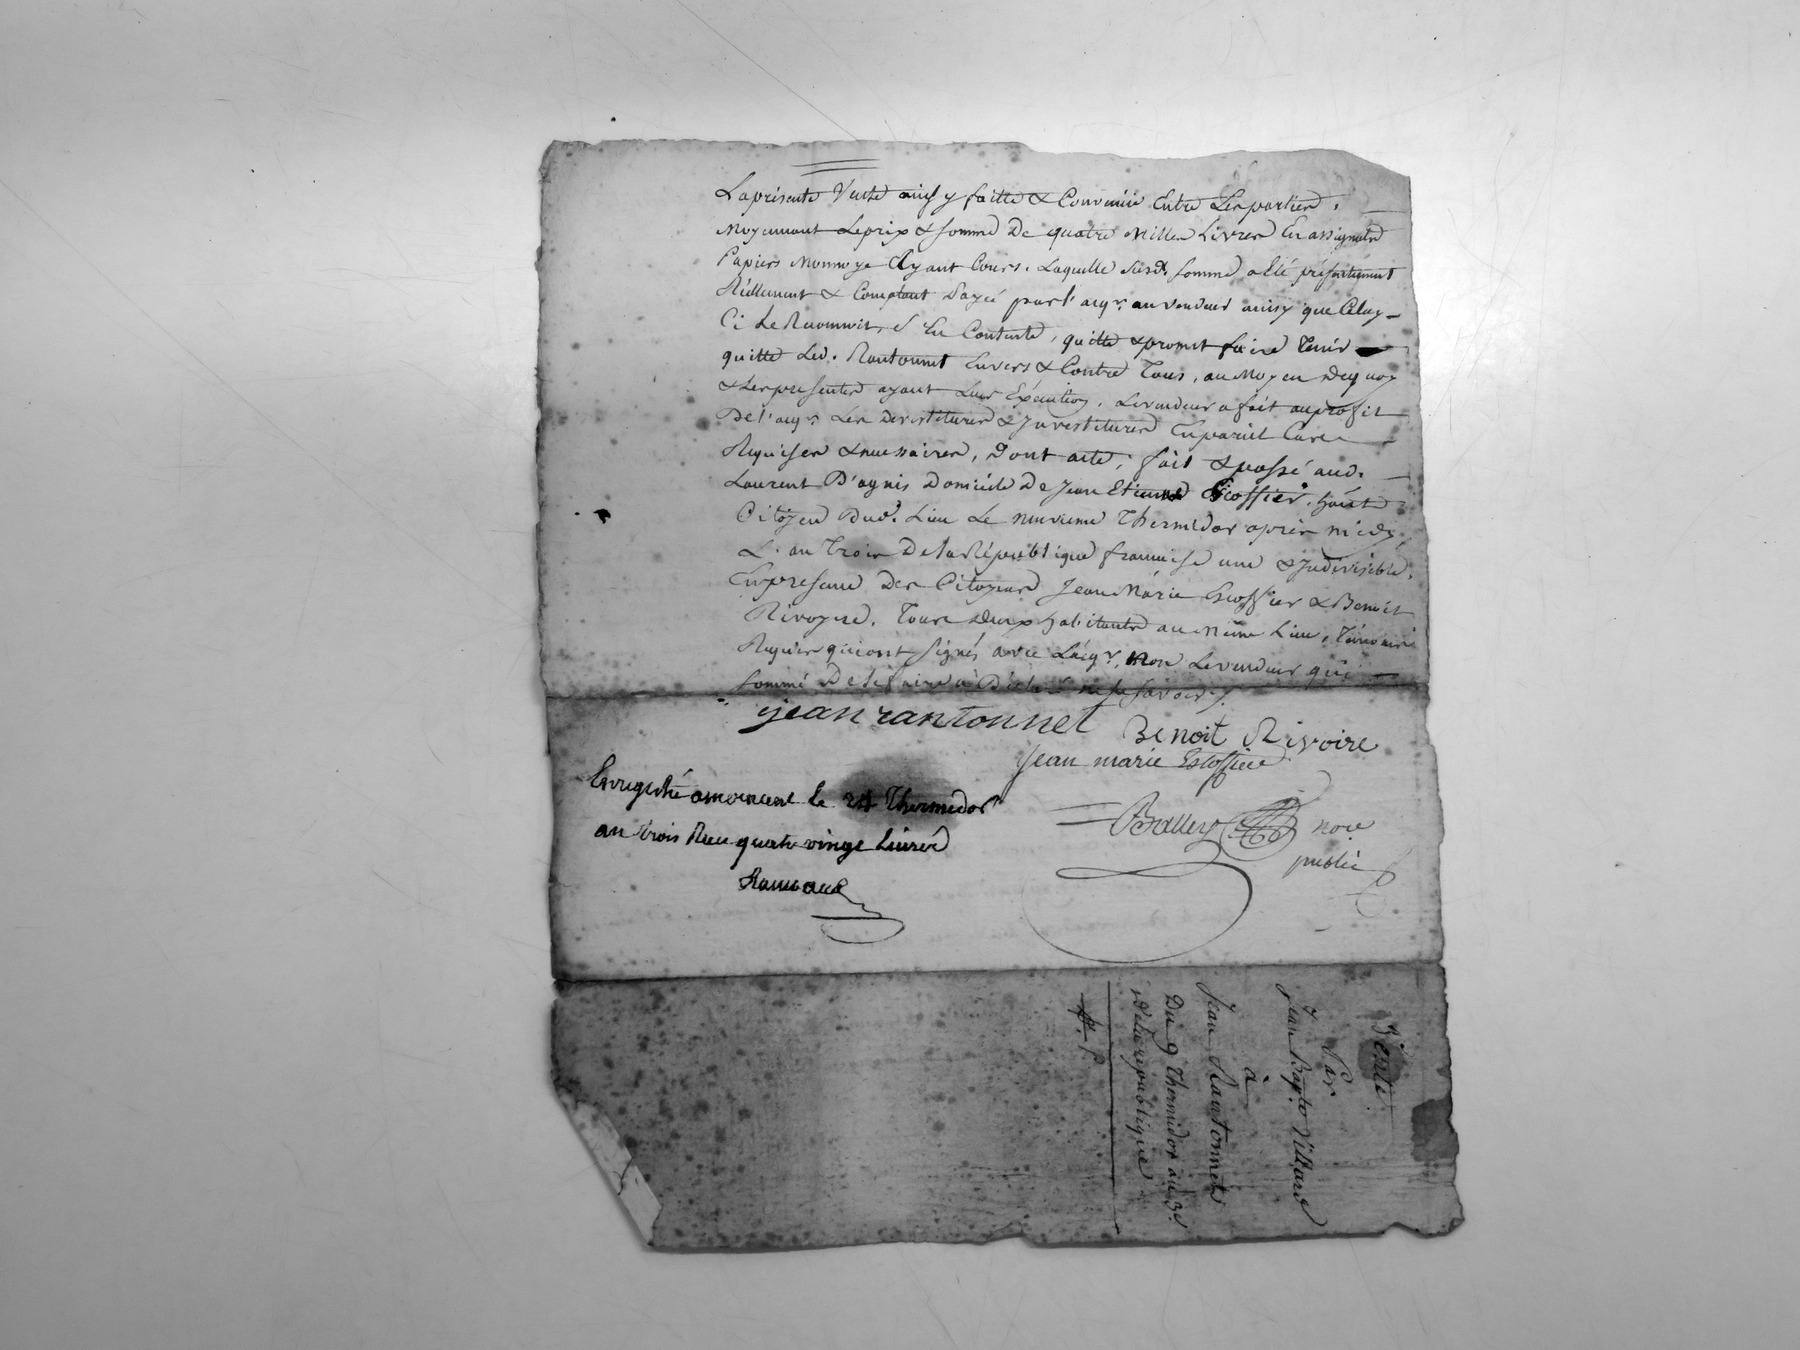 La présente Vente ainsy faitte & Convenüe Entre Les parties,
Moyennant Le prix & somme De quatre Milles Livres En assignats
Papiers Monnoye Ayant Cours. Laquelle susd. somme a Eté présentement
Réellement & Comptant Payée par l'aqr. au vendeur ainsy que Celuy-
Ci Le Reconnoit, s'En Contente, quitte & promet faire Tenir
quitte Led. Rantonnet Envers & Contre Tous, au Moyen de quoy
& Les presentes ayant Leur Exécution, Le vendeur a fait au profit
De l'aqr. Les Devestitures & Investitures En pareil Cas
Requises & necessaires, Dont acte; fait & passé aud.
Laurent D'agnis Domicile De Jean Etienne Escoffier, habt
Citoyen Dud. Lieu Le neuvieme Thermidor après midy,
L'an Trois De la République francaise une & Indivisible,
En presence Des Citoyens Jean Marie Escoffier & Benoit
Rivoyre, Tous deux habitants au Même Lieu, Témoins
Requis qui ont signés avec L'aqr. non Le vendeur qui
sommé De le faire a Déclaré ne le savoir.
jean rantonnet
Benoit Rivoire
Jean marie Escoffier
Enregistré a mornant Le 24 Thermidor
an trois Reçu quatre vingt Livres
Balley nore
public
Vente
Par
Jean Bapte. Villard
à
Jean Rantonnet
Du 9 Thermidor an 3e
de la république